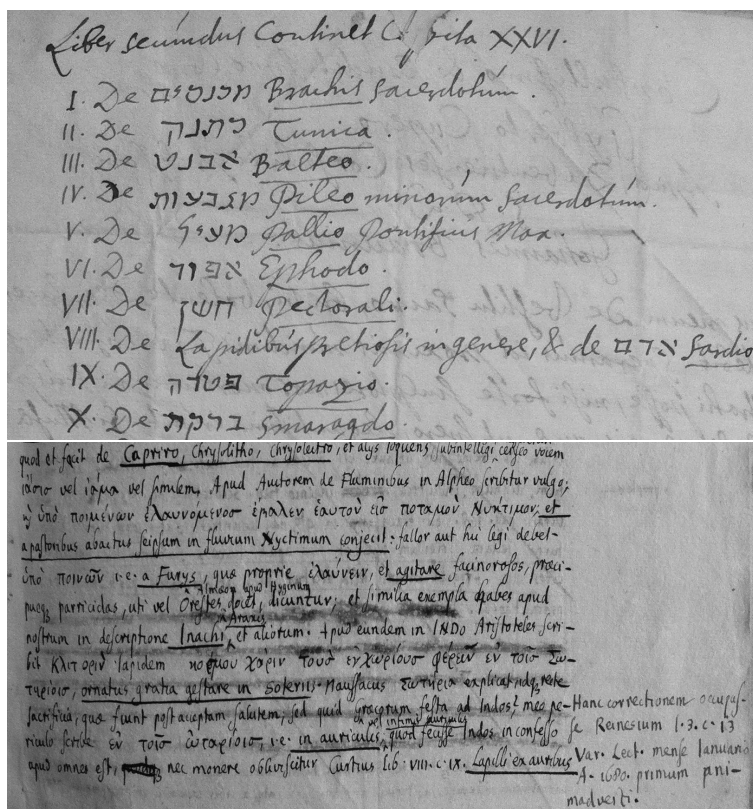 Liber secundus Continet Capita XXVI.
I. De מכנסים Brachis Sacerdotum.
II. De כתנת Tunica.
III. De אבנט Balteo.
IV. De מגבעות Pileo minorum Sacerdotum.
V. De מעיל Pallio Pontificis Max.
VI. De אפוד Ephodo.
VII. De חשן Pectorali.
VIII. De Lapidibus pretiosis in genere, & de אדם Sardio
IX. De פטדה Topazio.
X. De ברקת Smaragdo.
quod et facit de Capriro, Chrysolitho, Chrysolectro, et alys loquens subintelligi censeo vocem
ἰάσιο vel ἰάμα vel similem, Apud Auctorem de Fluminibus in Alpheo scribitur vulgo;
ὑπὸ ποιμένων ἐλαυνόμενοσ ἔβαλεν ἑαυτὸν εἰσ ποταμὸν Νυκτιμον; et
a pastoribus abactus seipsum in fluvium Nyctimum conjecit: fallor aut hic legi debet-
ὑπὸ ποινῶν i.e. a Furys, quæ proprie ἐλαύνειν, et agitare facinorosos, præci-
Almæon apud Hyginum
pueq parricidas, uti vel Orestes docet, dicuntur; et similia exempla habes apud
in Araxis
nostrum in descriptione Inachi, et aliorum. Apud eundem in INDO Aristoteles scri-
bit κλιτοριν lapidem κόσμου χάριν τοὺσ ἐγχωρίουσ φέρειν ἐν τοῖσ Σω-
τηρίοισ, ornatus gratia gestare in Soteriis. Maussacus Σωτήρια explicat, idq recte
sacrificia, quæ fiunt post acceptam salutem, sed quid Græcorum festa ad Indos? meo pe-
vel intimis auriculis
riculo scribe ἐν τοῖσ ὠταρίοισ, i.e. in auriculis, quod fecisse Indos in confesso
apud omnes est, nec monere obliviscitur Curtius lib. VIII. c. IX. Lapilli ex auribus
Hanc correctionem occupas-
se Reinesium l. 3. c. 13
Var. Lect. mense Januario
A. 1680. primum ani-
madverti.